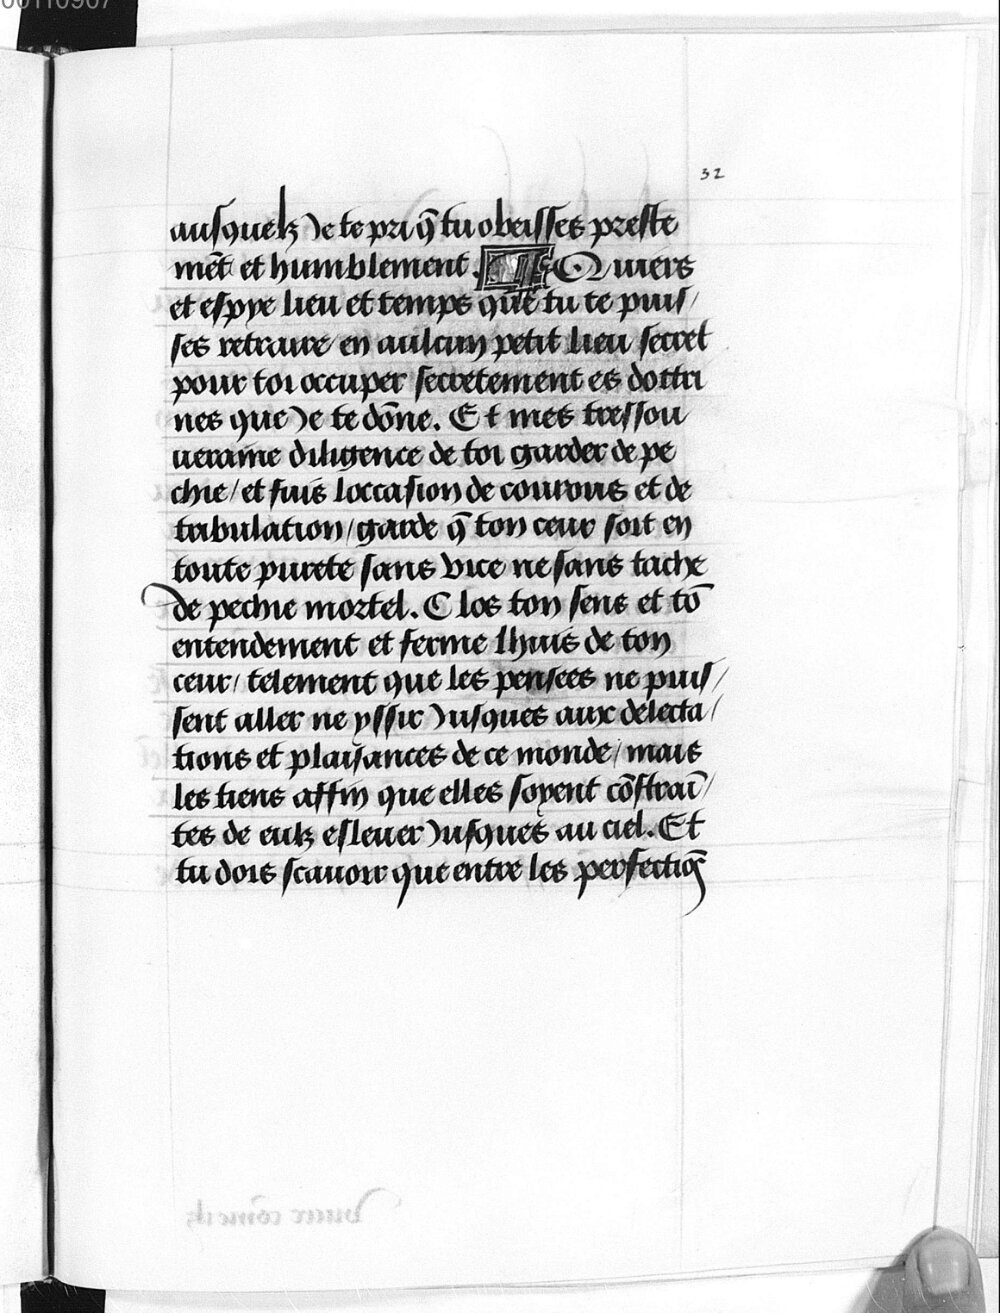 00110907
32
ausquelz Je te pri q̃ tu obeisses preste
mẽt et humblement. ¶ Quiers
et espye lieu et temps que tu te puis/
ses retraire en aulcun petit lieu secret
pour toi occuper secretement es dottri
nes que Je te dõne. Et mes tressou
ueraine diligence de toi garder de pe
chie/ et fuis loccasion de courous et de
tribulation/ garde q̃ ton ceur soit en
toute purete sans vice ne sans tache
de pechie mortel. Clos ton sens et tõ
entendement et ferme lhuis de ton
ceur/ telement que les pensees ne puis/
sent aller ne yssir Jusques aux delecta/
tions et plaisances de ce monde/ mais
les tiens affin que elles soyent cõstrai͂/
tes de eulz esleuer Jusques au ciel. Et
tu dois scauoir que entre les perfectiõs